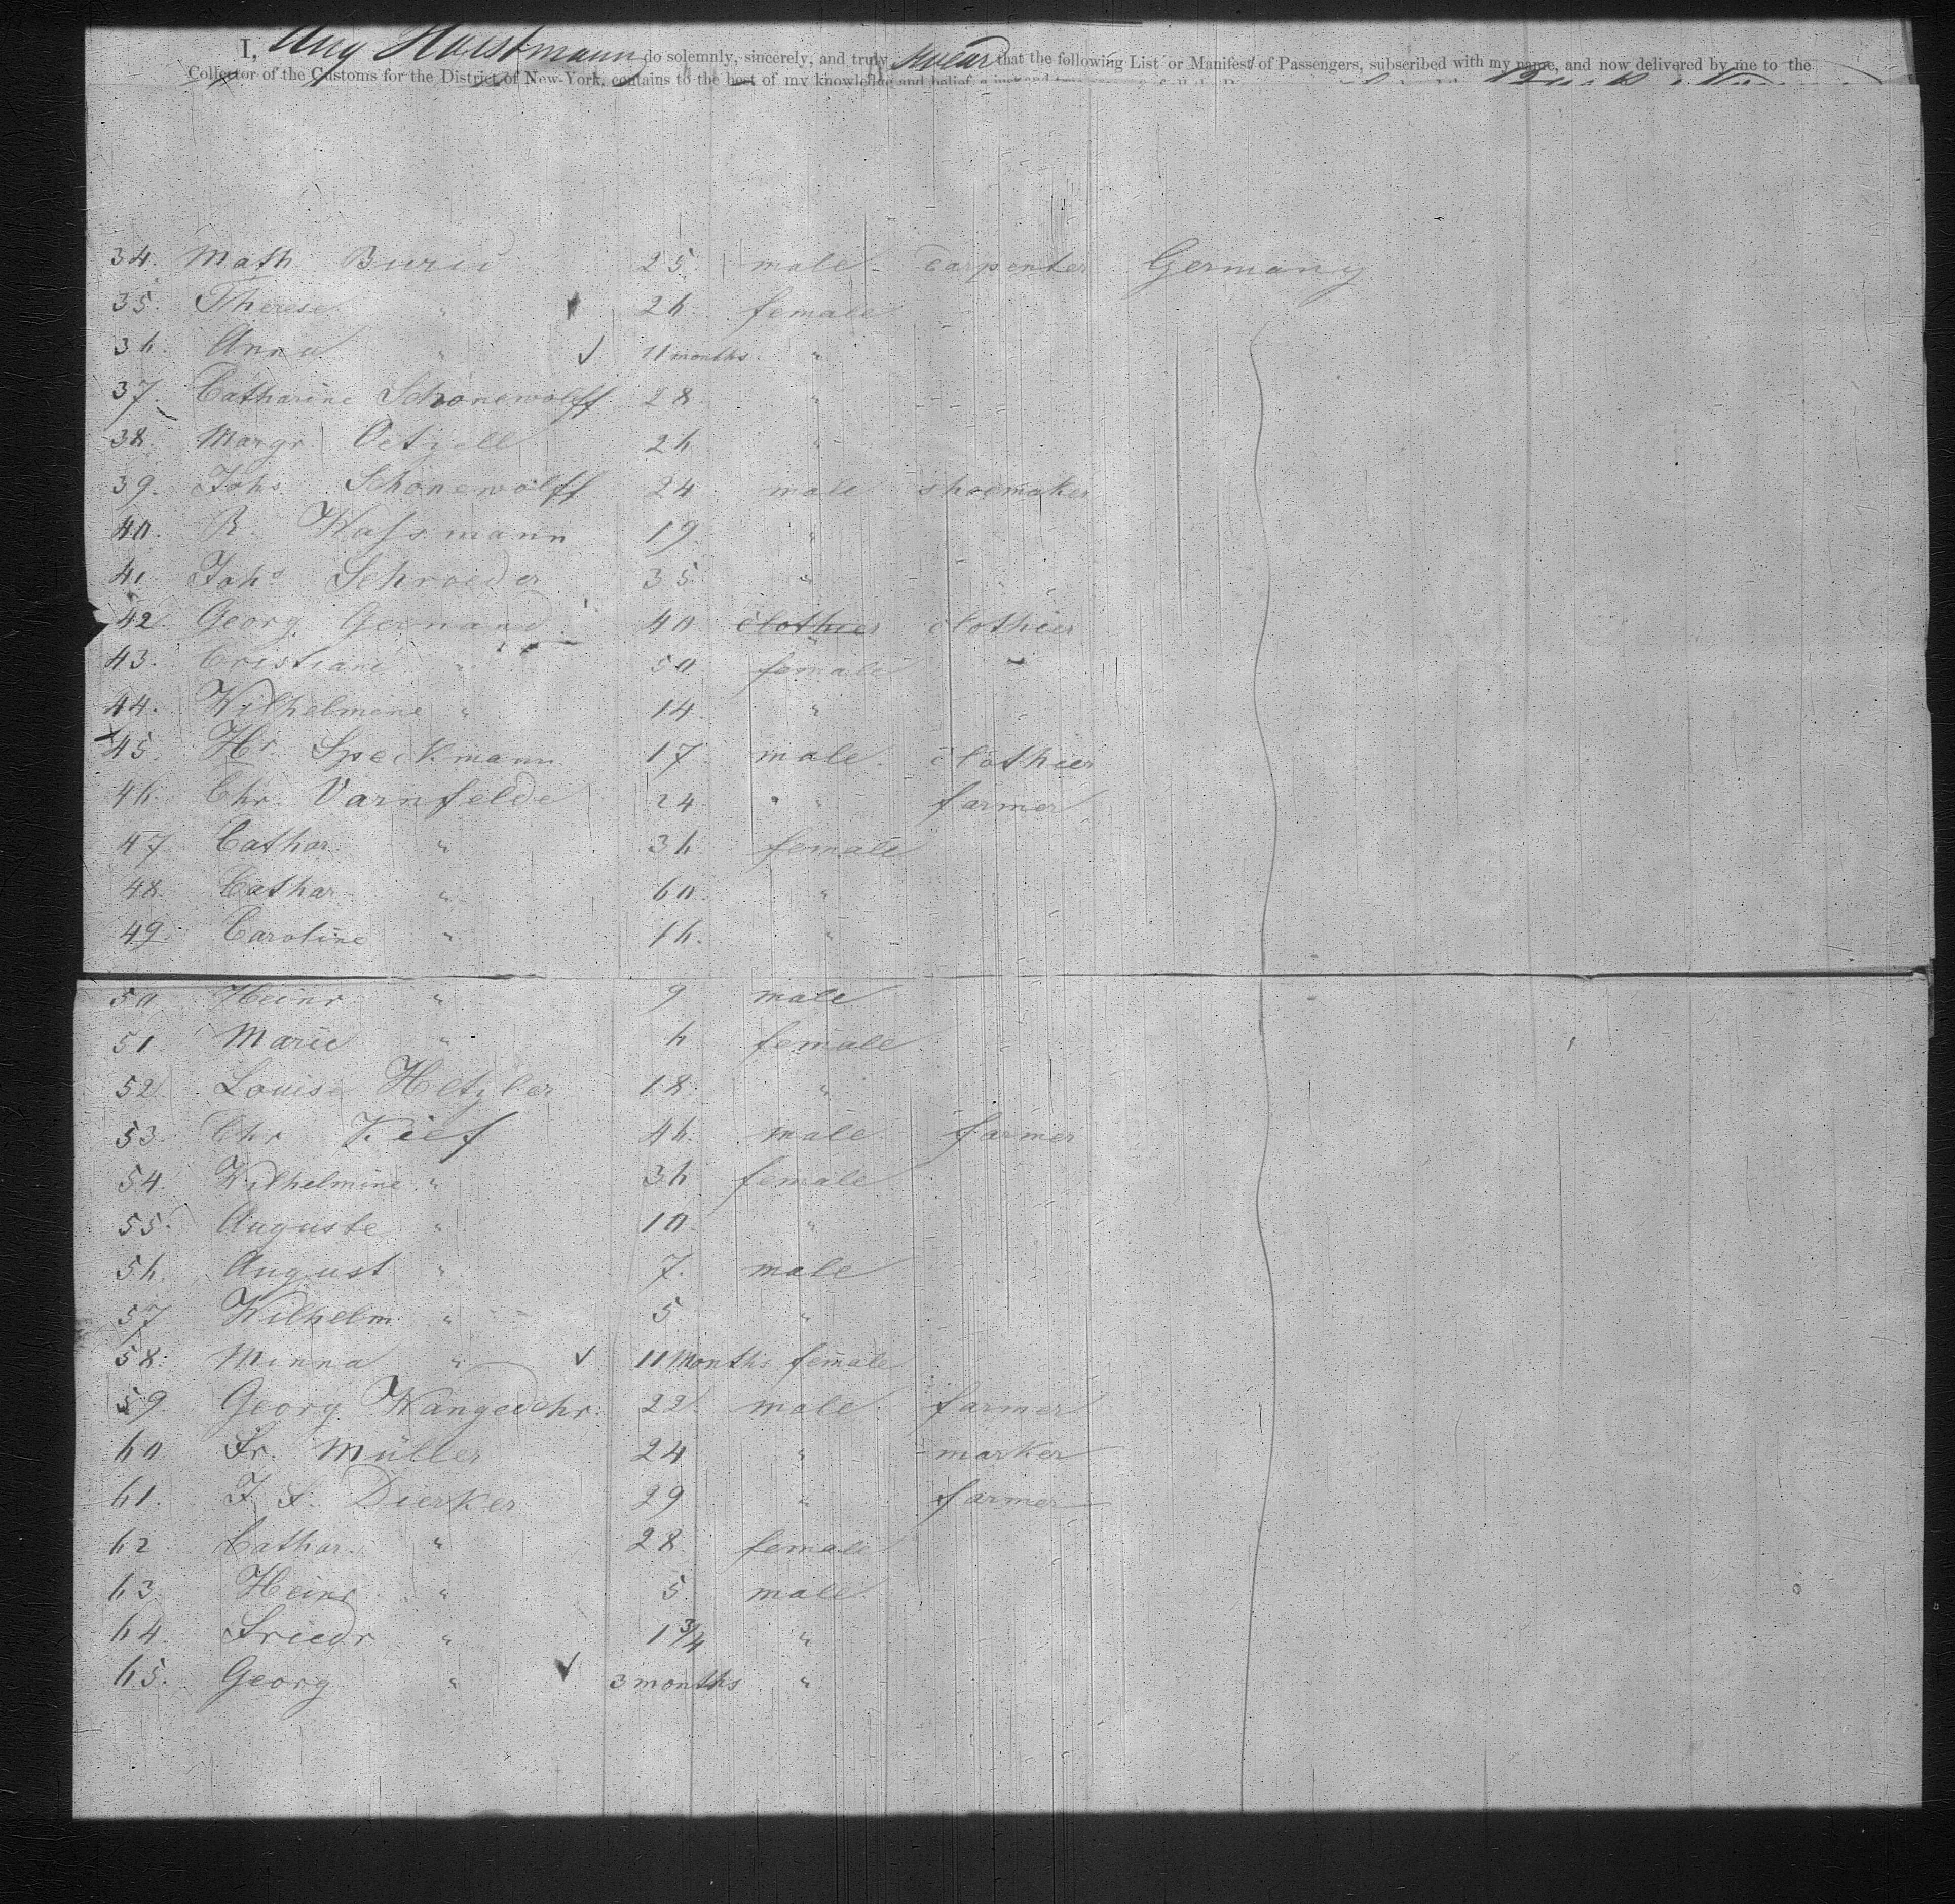 I, Aug Horstmann do solemnly, sincerely, and truly swear that the following List or Manifest of Passengers, subscribed with my name, and now delivered by me to the
Collector of the Customs for the District of New-York, contains to the best of my knowledge and belief, a just and
34. Math Buru 25. male carpenter Germany
35. Therese " 26 female
36. Anna " ✓ 11 months "
37. Catharine Schonewolff 28 "
38. Margr. 26 "
39. Johs Schonewolff 24 male shoemaker
40. R. Wassmann 19 "
41. Johs Schroeder 35 " "
42. Georg Gernand 40 clothier clothier
43. Cristiane " 50 female
44. Wilhelmene " 14 "
x 45. Hr. Speckmann 17 male. clothier
46. Chr. Varnfelde 24 " farmer
47 Cathar. " 36 female
48 Cathar " 60 "
49. Caroline " 16. "
50 Heinr " 9 male
51. Marie " 6 female
52 Louise Hetzler 18 "
53. Chr Kief 46. male farmer
54. Wilhelmine " 36 female
55. Auguste " 10 "
56. August " 7. male
57 Wilhelm " 5 "
58. Minna " ✓ 11 Months female
59 Georg Wangedehr. 22 male farmer
60 Fr. Müller 24 " marker
61. J. F. Dierker 29 " farmer
62 Cathar. " 28 female
63. Heinr " 5 male
64. Friedr " 1 3/4 "
65. Georg " ✓ 3 months "